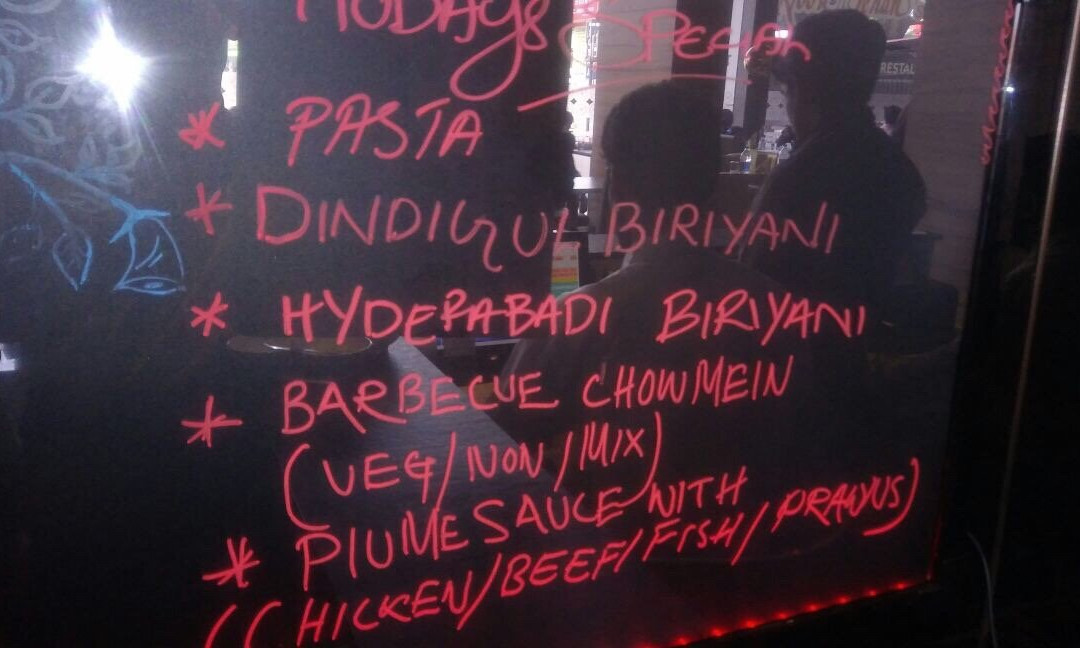 TODAYS SPECIAL
* PASTA
* DINDIGUL BIRIYANI
* HYDERABADI BIRIYANI
* BARBECUE CHOWMEIN
(VEG/NON/MIX)
* PLUME SAUCE WITH
(CHICKEN/BEEF/FISH/PRAWNS)
RESTAU